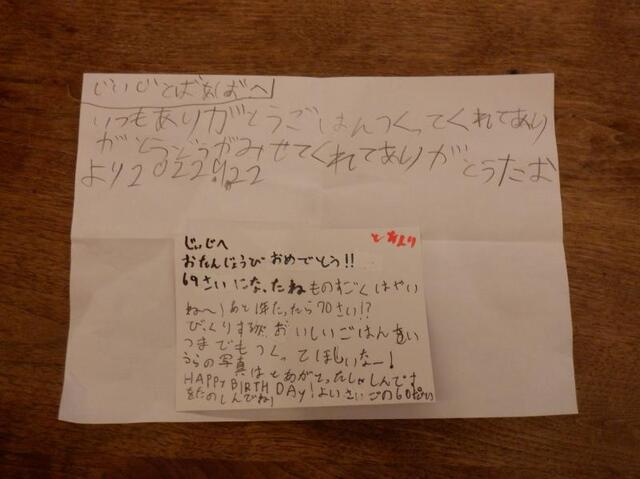 じいじとばあばへ
いつもありがとうごはんつくってくれてあり
がとうどうがみせてくれてありがとうたお
より2022.9.22
じぃじへ
とあより
おたんじょうび おめでとう!!
69さいになったねものすごくはやい
ね〜!あと1年たったら70さい!?
びっくりする おいしいごはんをい
つまでもつくってほしいなー!
うらの写真はとあがとったしゃしんです
HAPPY BIRTH DAY!よいさいごの60だい
をたのしんでね!